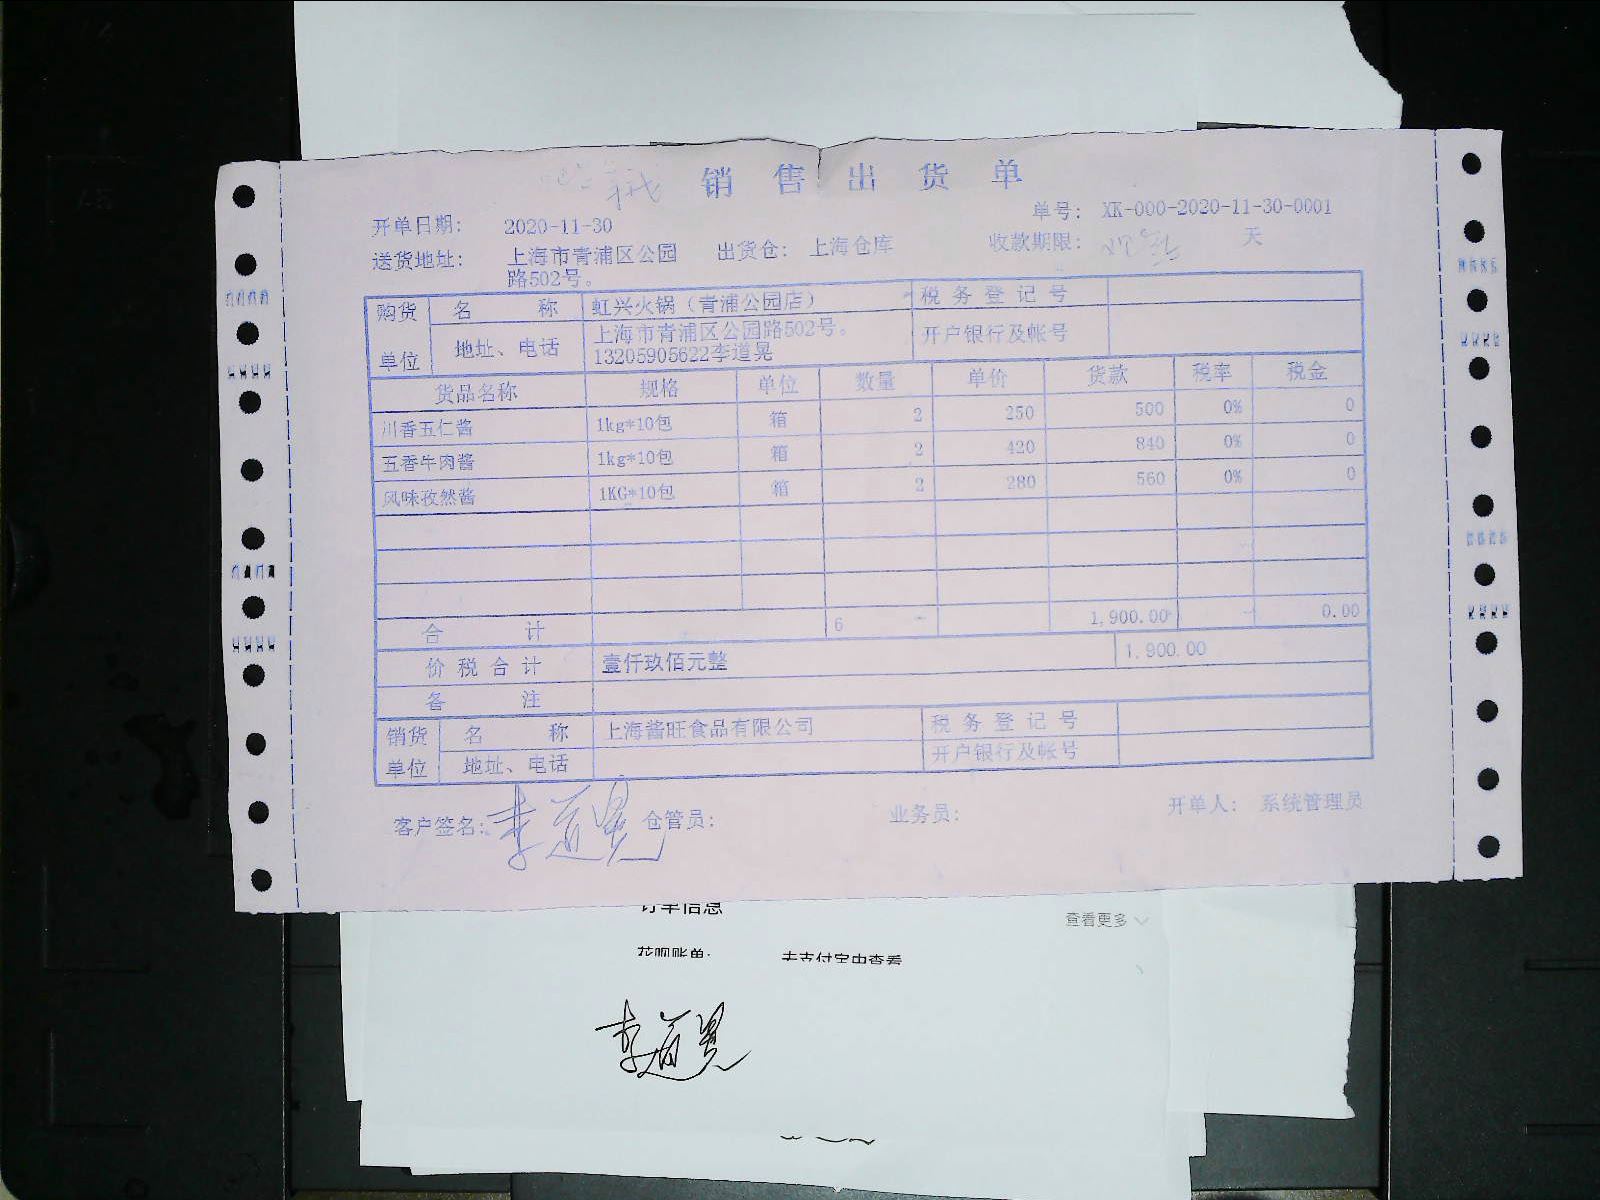 销售出货单
开单日期： 2020-11-30 单号： XK-000-2020-11-30-0001
送货地址： 上海市青浦区公园路502号。 出货仓： 上海仓库 收款期限： 天
购货单位 名称 虹兴火锅（青浦公园店） 税务登记号
地址、电话 上海市青浦区公园路502号。13205905622李道晃 开户银行及帐号
货品名称 规格 单位 数量 单价 货款 税率 税金
川香五仁酱 1kg*10包 箱 2 250 500 0% 0
五香牛肉酱 1kg*10包 箱 2 420 840 0% 0
风味孜然酱 1KG*10包 箱 2 280 560 0% 0
合计 6 1,900.00 0.00
价税合计 壹仟玖佰元整 1,900.00
备注
销货单位 名称 上海酱旺食品有限公司 税务登记号
地址、电话 开户银行及帐号
客户签名： 李道晃 仓管员： 业务员： 开单人： 系统管理员
订单信息 查看更多
花呗账单： 去支付宝中查看
李道晃